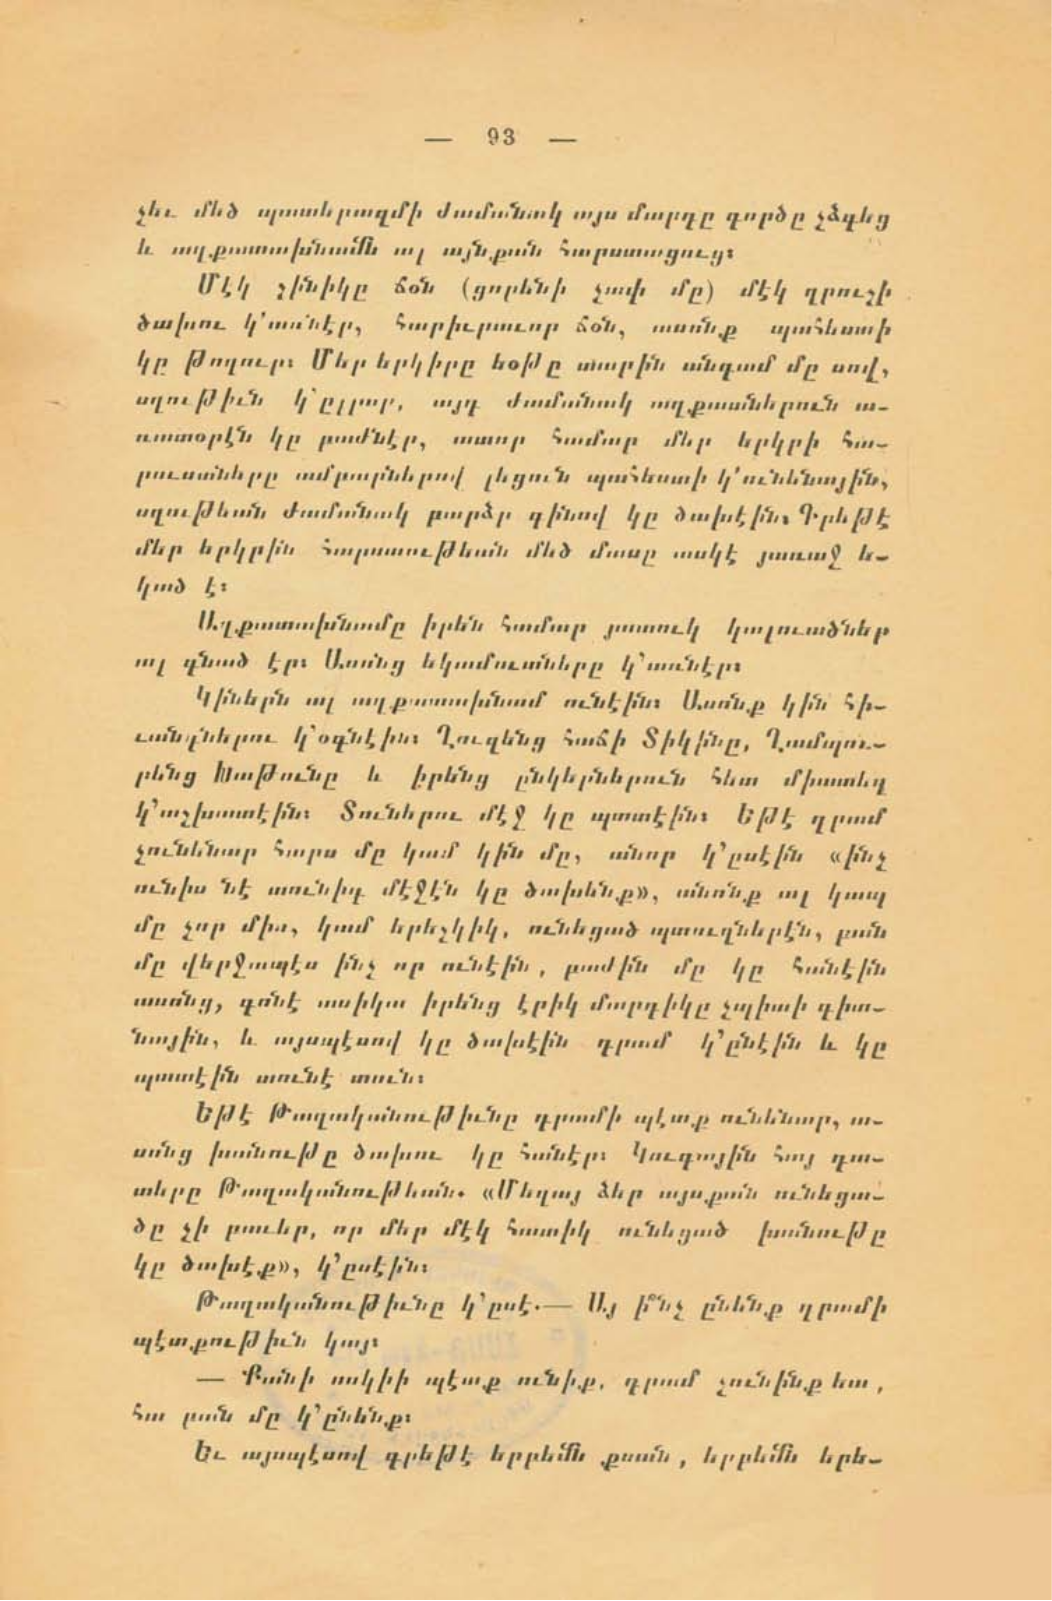 — 93 —
չեւ մեծ պատերազմի ժամանակ այս մարդը գործը չձգեց
և աղքատախնամն ալ այնքան հարստացուց։
Մէկ չինիկը ճօն (ցորենի չափ մը) մէկ ղրուշի
ծախու կ՚առնէր, հարիւրաւոր ճօն, ասոնք պահեստի
կը թողուր։ Մեր երկիրը եօթը տարին անգամ մը սով,
սղութիւն կ՚ըլլար, այդ ժամանակ աղքատներուն ա-
ռատօրէն կը բաժնէր, ատոր համար մեր երկրի հա-
րուստները ամբարներով լեցուն պահեստի կ՚ունենային,
սղութեան ժամանակ բարձր գինով կը ծախէին։ Գրեթէ
մեր երկրին հարստութեան մեծ մասը ասկէ յառաջ ե-
կած է։
Աղքատախնամը իրեն համար յատուկ կալուածներ
ալ գնած էր։ Ասոնց եկամուտները կ՚առնէր։
Կիներն ալ աղքատախնամ ունէին։ Ասոնք կին հի-
ւանդներու կ՚օգնէին։ Ղուզենց հաճի Տիկինը, Ղամպու-
րենց Խաթունը և իրենց ընկերներուն հետ միատեղ
կ՚աշխատէին։ Տուներու մէջ կը պտտէին։ Եթէ դրամ
չունենար հարս մը կամ կին մը, անոր կ՚ըսէին «ինչ
ունիս նէ տունիդ մէջէն կը ծախենք», անոնք ալ կապ
մը չոր միս, կամ երեշկիկ, ունեցած պտուղներէն, բան
մը վերջապէս ինչ որ ունէին, բաժին մը կը հանէին
ասոնց, գոնէ ասիկա իրենց էրիկ մարդիկը չպիտի գիտ-
նային, և այսպէսով կը ծախէին դրամ կ՚ընէին և կը
պտտէին տունէ տուն։
Եթէ Թաղականութիւնը դրամի պէտք ունենար, ա-
սոնց խանութը ծախու կը հանէր։ Կուգային հայ դա-
տերը Թաղականութեան. «Մեղայ ձեր այսքան ունեցա-
ծը չի բաւեր, որ մեր մէկ հատիկ ունեցած խանութը
կը ծախէք», կ՚ըսէին։
Թաղականութիւնը կ՚ըսէ.— Այ ի՞նչ ընենք դրամի
պէտքութիւն կայ։
— Քանի ոսկիի պէտք ունիք, դրամ չունինք եա,
հա բան մը կ՚ընենք։
Եւ այսպէսով գրեթէ երբեմն քսան, երբեմն երե-